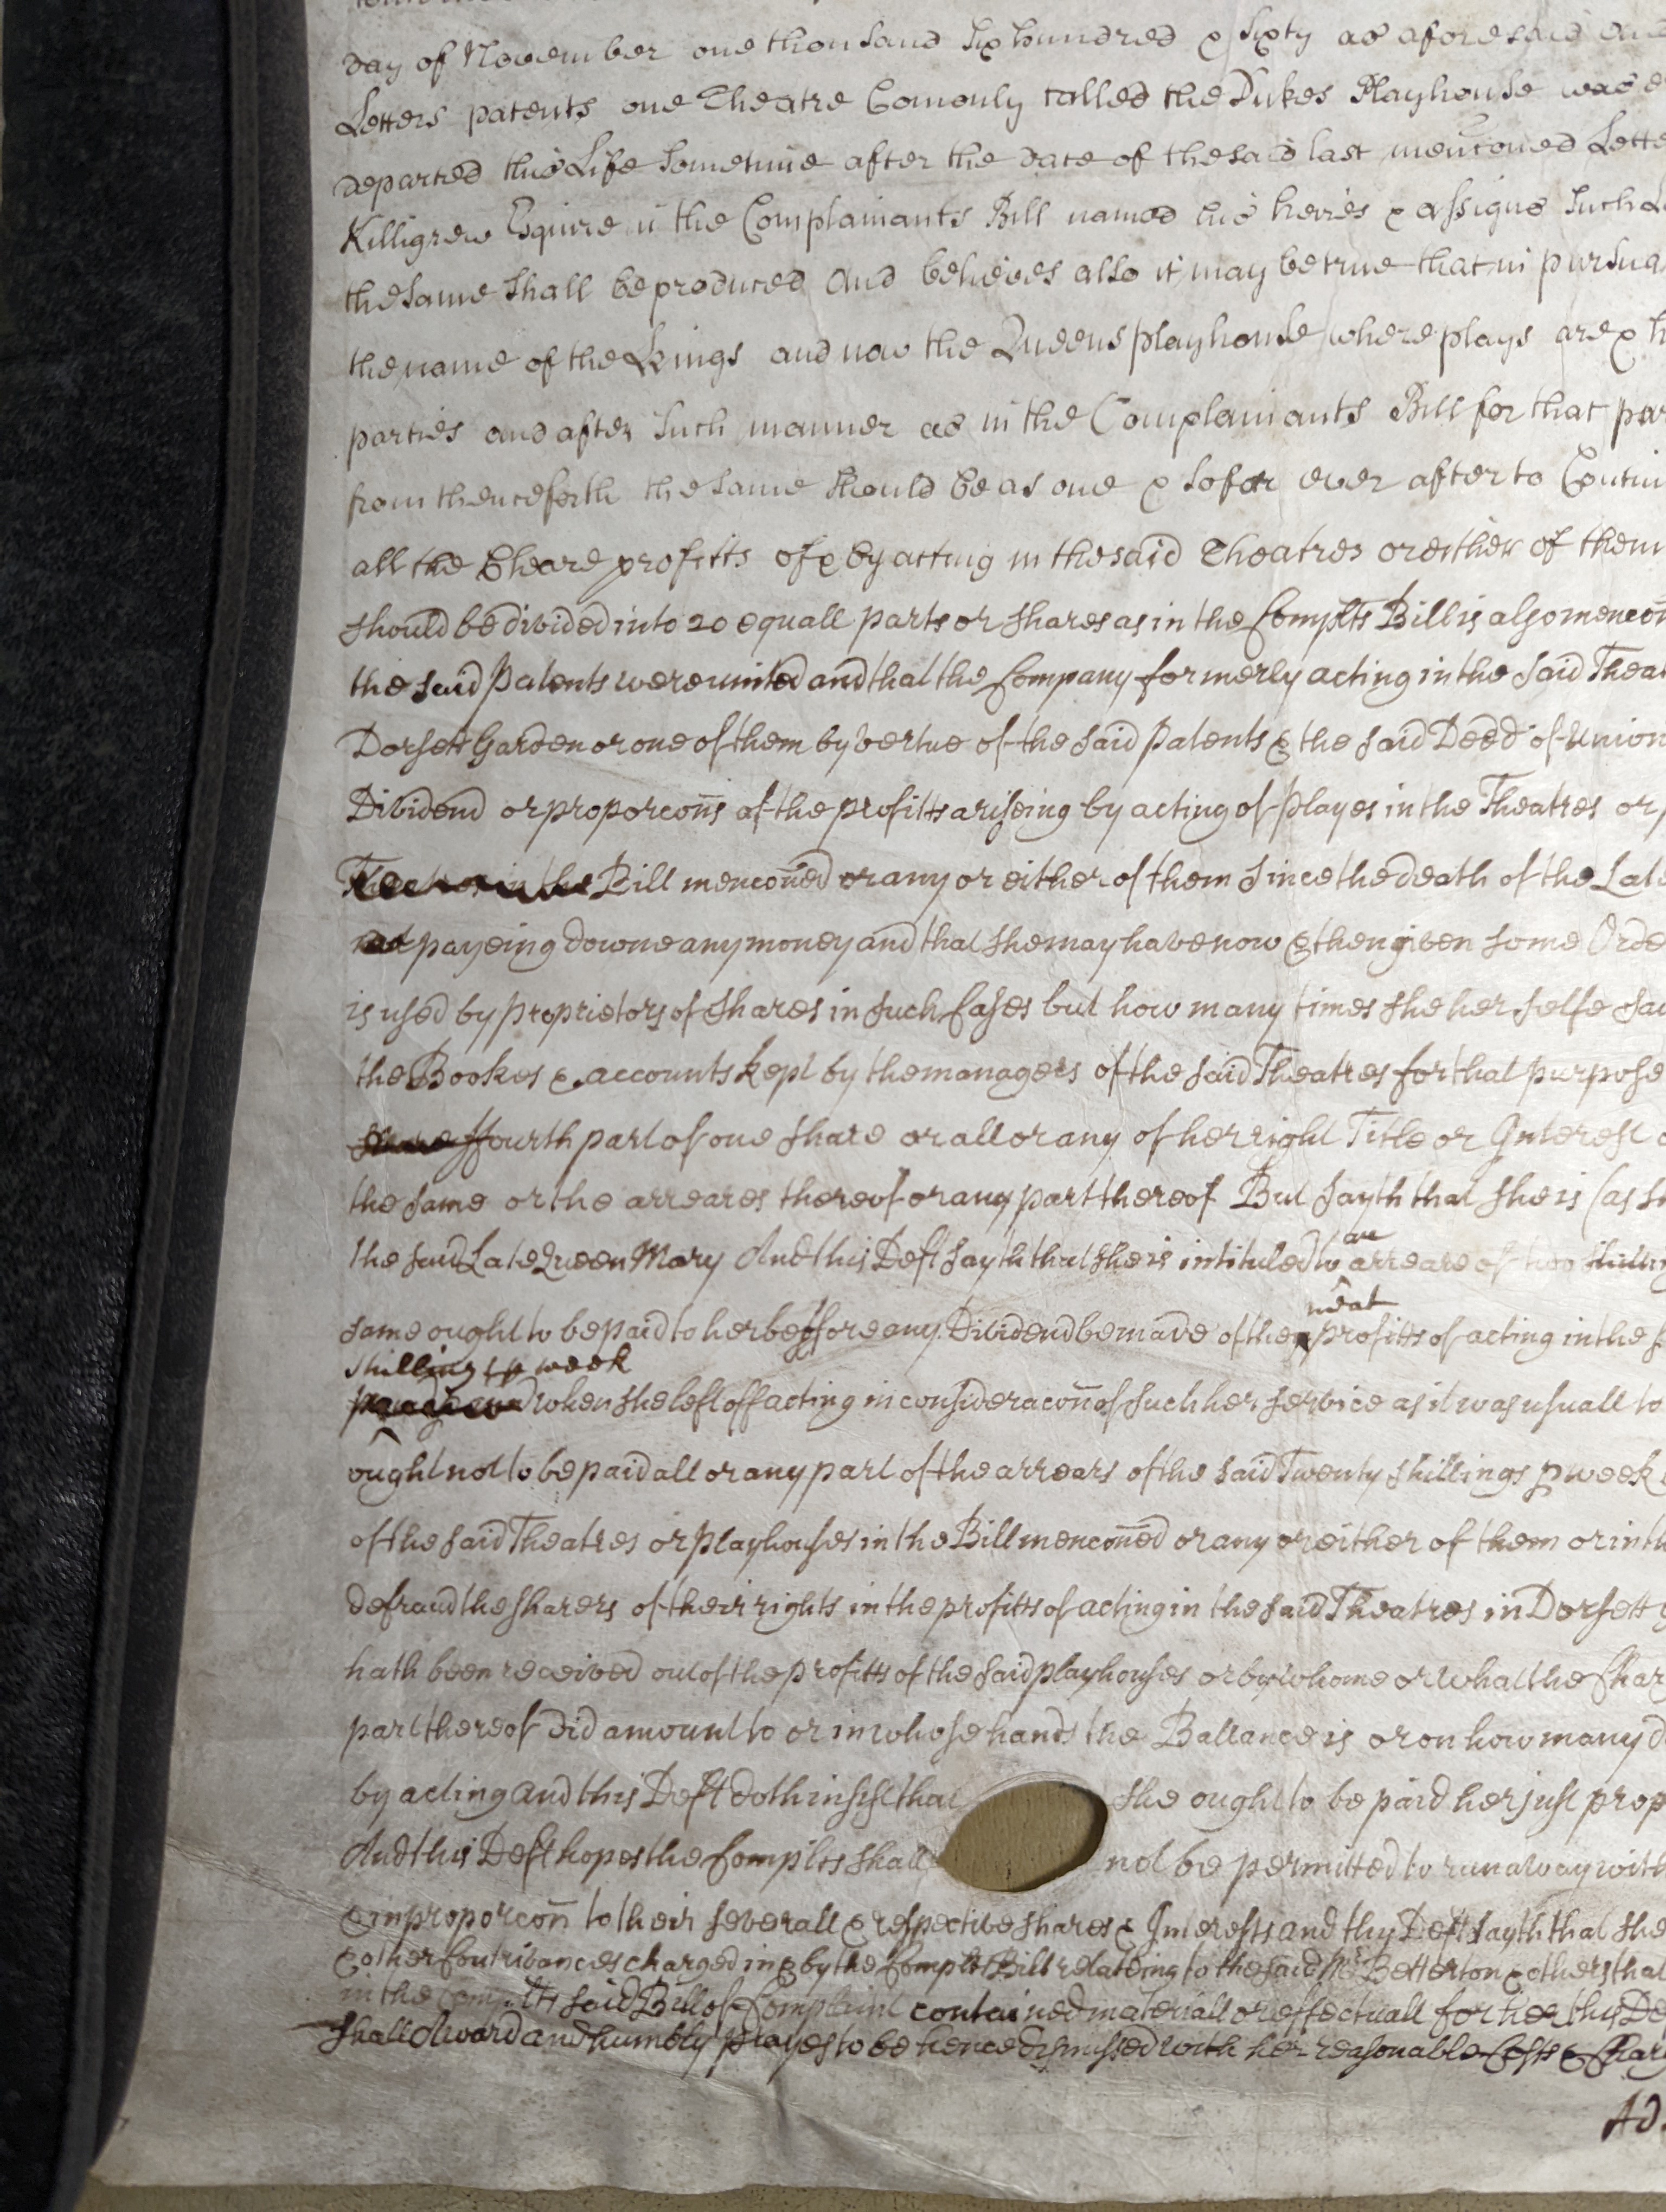 day of November one thousand six hundred & sixty as aforesaid and
Letters patents one Theatre Comonly called the Dukes Playhouse was
departed this Life sometime after the date of the said last mencioned Lette
Killigrew Esquire in the Complainants Bill named his heires & assignes such
the same shall be produced And beleives also it may be true that in pursua
the name of the Kings and now the Queens playhouse where plays are &
parties and after such manner as in the Complainants Bill for that par
from thenceforth the same should be as one & so for ever after to Contin
all the Cleare profitts of & by acting in the said Theatres or either of them
should be divided into 20 equall parts or shares as in the Complts Bill is also mencon
the said Patents were united and that the Company formerly acting in the said Theat
Dorsett Garden or one of them by vertue of the said Patents & the said Deed of Union
Dividend or proporcons of the profitts ariseing by acting of Playes in the Theatres or
Bill menconed or any or either of them since the death of the Late
payeing downe any money and that she may have now & then given some Orde
is used by proprietors of shares in such Cases but how many times she her selfe
the Bookes & accounts kept by the managers of the said Theatres for that purpose
ffourth part of one share or all or any of her right Title or Interest
the same or the arreares thereof or any part thereof But sayth that she is (as
the said Late Queen Mary And this Deft sayth that she is intituled to an arreare of two shilling
same ought to be paid to her beffore any Dividend be made of the neat profitts of acting in the
shillings p week when she left off acting in consideracon of such her service as it was usuall to
ought not to be paid all or any part of the arrears of the said Twenty shillings p week
of the said Theatres or playhouses in the Bill menconed or any or either of them or in
defraud the sharers of their rights in the profitts of acting in the said Theatres in Dorsett
hath been received out of the profitts of the said playhouses or by whome or what the shar
part thereof did amount to or in whose hands the Ballance is or on how many
by acting And this Deft doth insist that she ought to be paid her just prop
And this Deft hopes the Complts shall not be permitted to run away with
& in proporcon to their severall & respective shares & Interests and this Deft sayth that she
& other Contrivances charged in & by the Complts Bill relateing to the said Mr Betterton & others that
in the Complts said Bill of Complaint contained materiall or effectuall for her this De
shall Award and humbly prayes to be hence dismissed with her reasonable Costs & Char
Ad